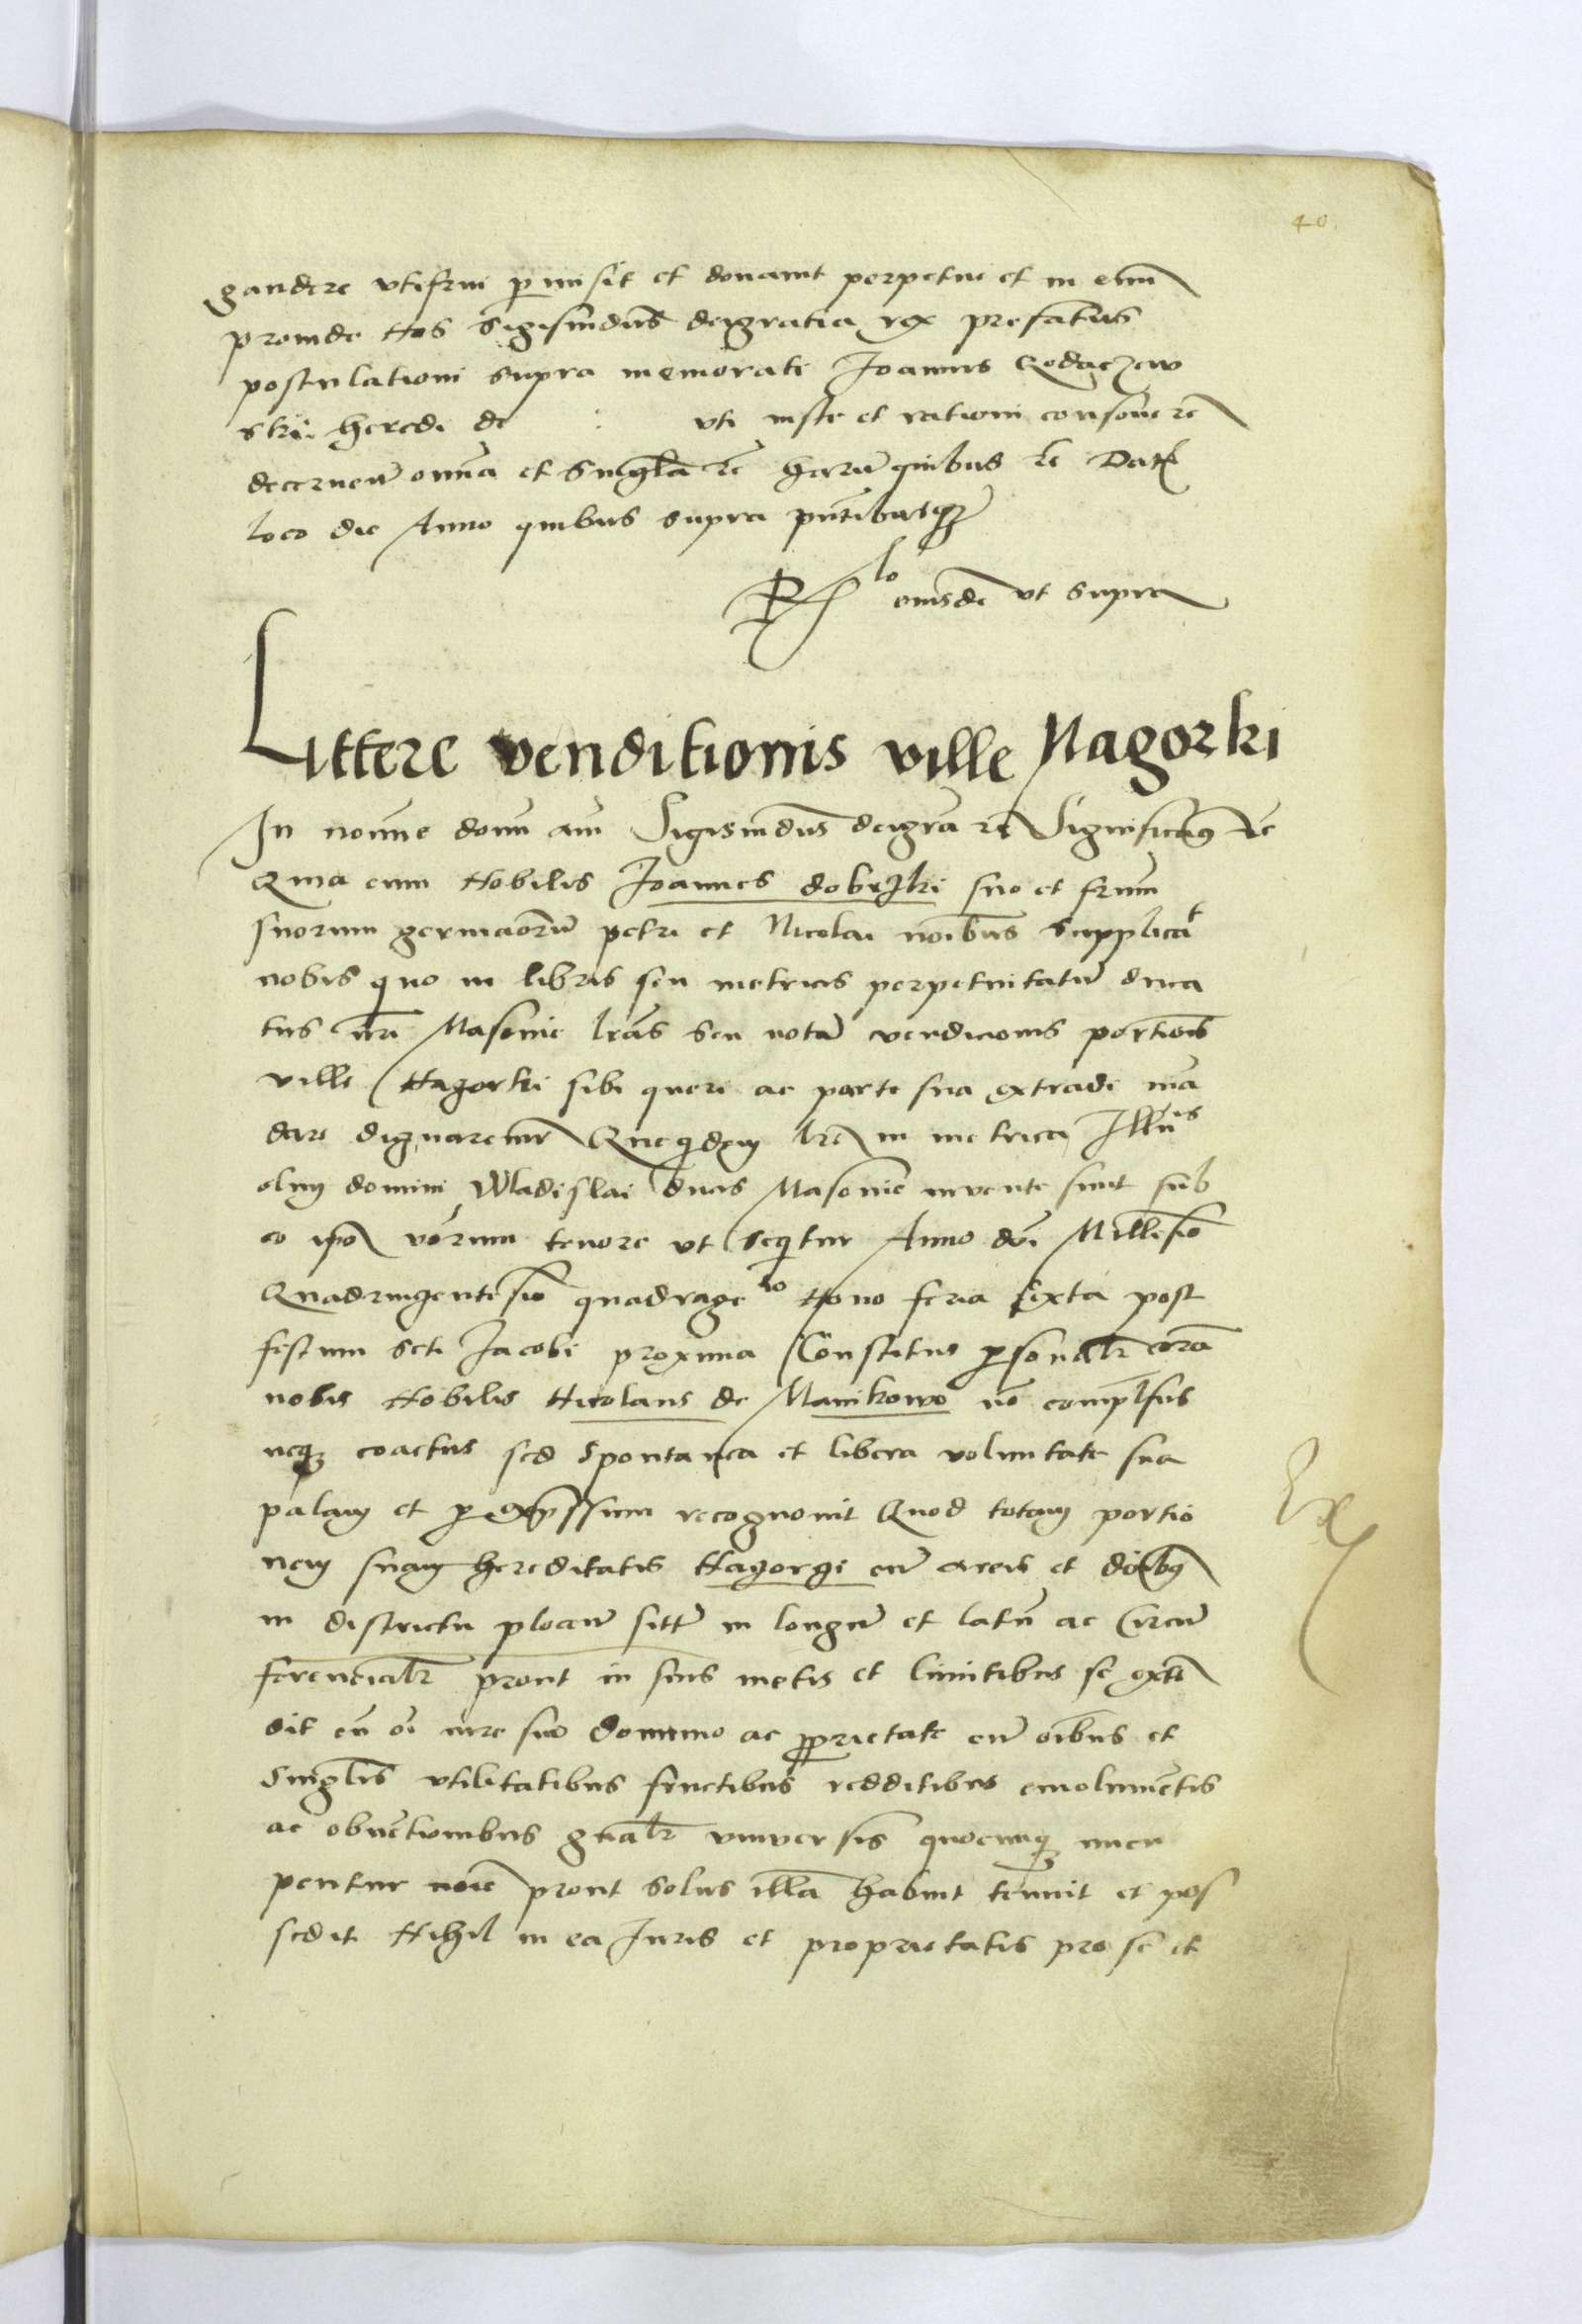 40
gaudere utifrui pmisit et donavit perpetue et in evum
proinde Nos Sigismdus deigratia rex prefatus
postulationi supra memorati Joannis Rodaczew
skii heredi de : uti iuste et rationi consone re
decernem omnia et Singla rc harum quibus rc Dat
loco die Anno quibus supra pntibusq
Rlo eiusde ut supra
Littere venditionis ville Nagorki
In nomine domi am Sigismdus deigra rc Significamus rc
Quia cum Nobilis Joannes dobrzki suo et frum
suorum germaorum petri et Nicolai noibus supplicat
nobis quo in libris seu metricis perpetuitatum duca
tus nri Masovie lras seu notam vendicionis portiois
ville Nagorki sibi queri ac parte sua extradi ma
dare dignaremr Quequidem lre in metrica Illuis
olim domini Wladislai ducis Masovie invente sunt sub
eo ipo verum tenore ut sequitur Anno dni Millesio
Quadringentesio quadrageio Nono feria sexta post
festum scti Jacobi proxima Constitus psonalr cora
nobis Nobilis Nicolaus de Manikowo no compulsus
neq coactus sed Spontanea et libera voluntate sua
palam et p expssum recognovit Quod totam portio
nem suam hereditatis Nagorgi cum areis et doibus
in districtu plocen sittam in longum et latum ac Circum
ferencialr prout in suis metis et limitibus se exten
dit cum oi iure suo dominio ac pprietate cum oibus et
Singlis utilitatibus fructibus redditibus emolumentis
ac obventionibus gnalr universis quocumq nuncu
pentur noie prout Solus illa habuit tenuit et pos
sedit Nihil in ea Juris et proprietatis pro se et
Ex